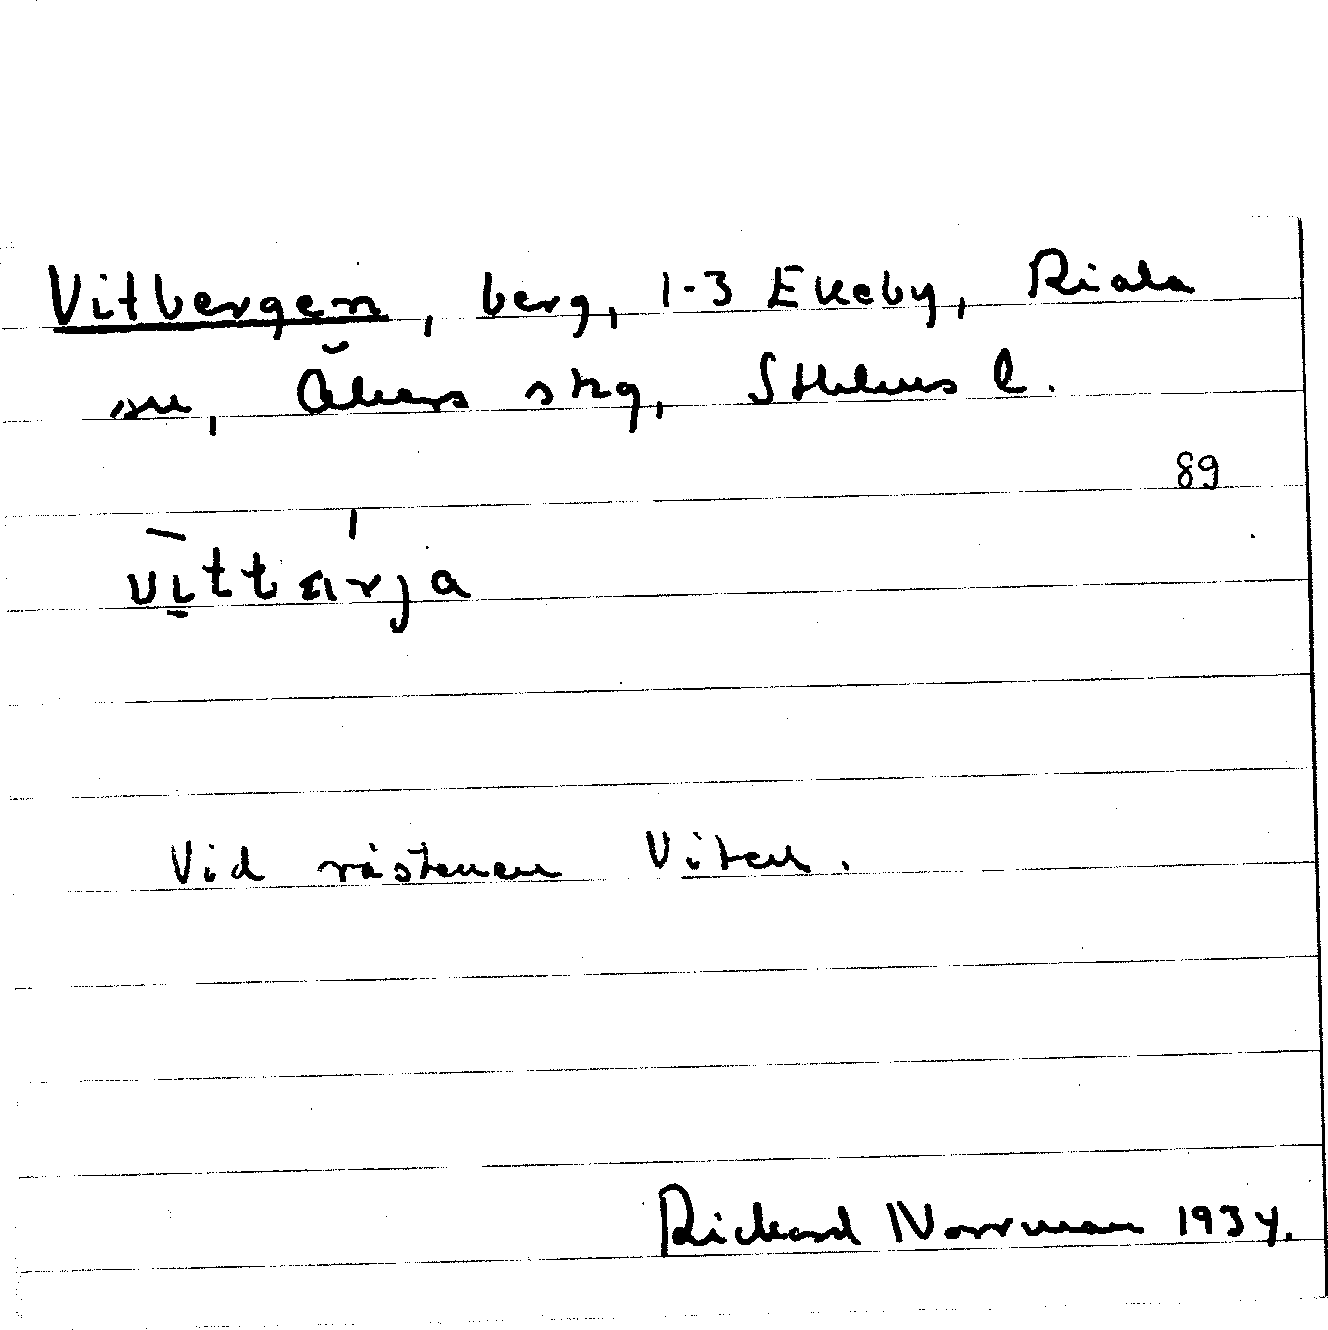 Vitbergen, berg, 1-3 Ekeby, Riala
sn, Åkers skg, Sthlms l.
89
Vid råstenen Viten.
Rickard Norrman 1934.